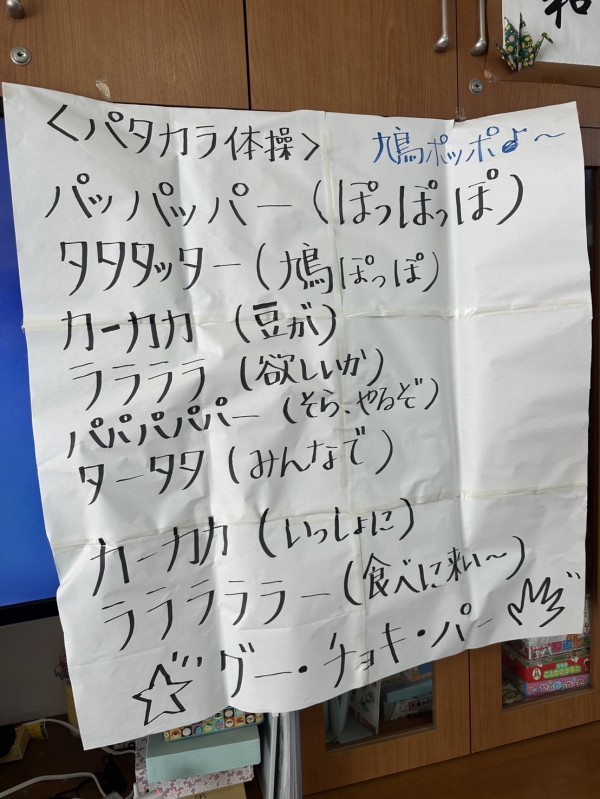 和
<パタカラ体操> 鳩ポッポ♪〜
パッパッパー(ぽっぽっぽ)
タタタッター(鳩ぽっぽ)
カーカカ(豆が)
ララララ(欲しいか)
パパパパパー(そら、やるぞ)
タータタ(みんなで)
カーカカ(いっしょに)
ラララララー(食べに来い〜)
グー・チョキ・パー